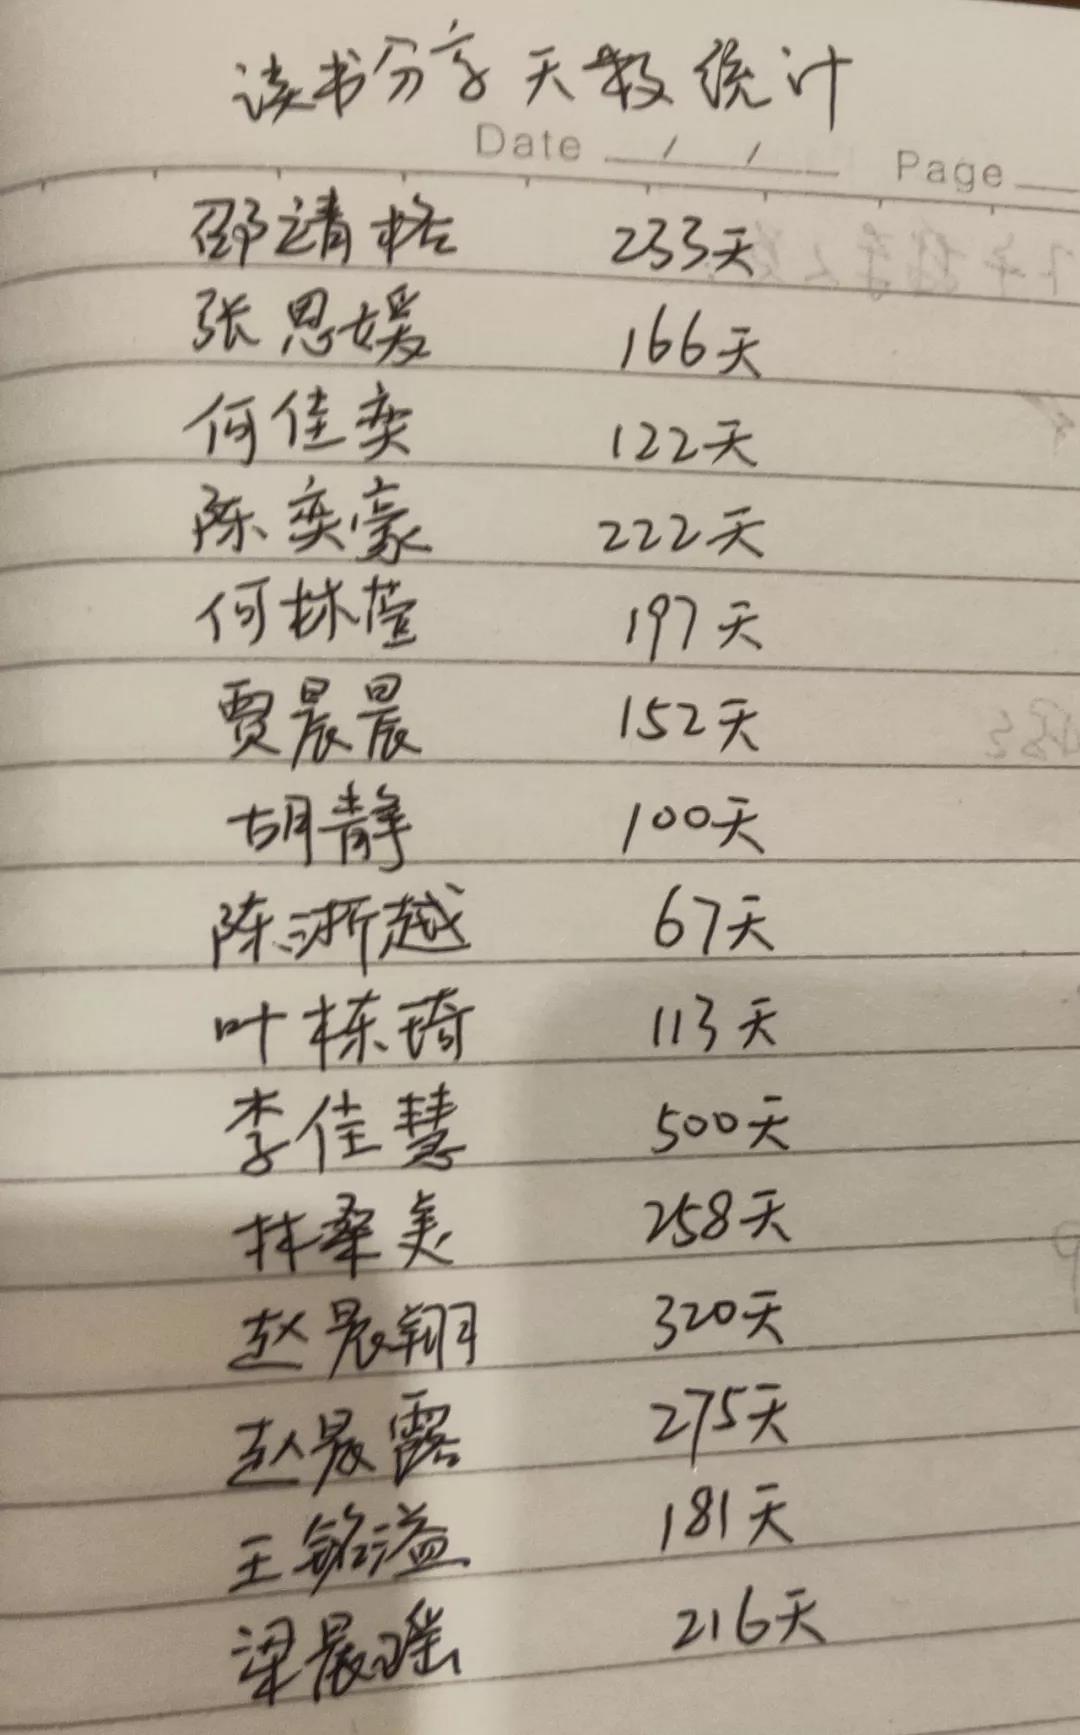 读书分享天数统计
Date / / Page
邵靖格 233天
张思媛 166天
何佳奕 122天
陈奕豪 222天
何林萱 197天
贾晨晨 152天
胡静 100天
陈浙越 67天
叶栋琦 113天
李佳慧 500天
林桑美 258天
赵晨翔 320天
赵晨露 275天
王铭溢 181天
梁晨瑶 216天